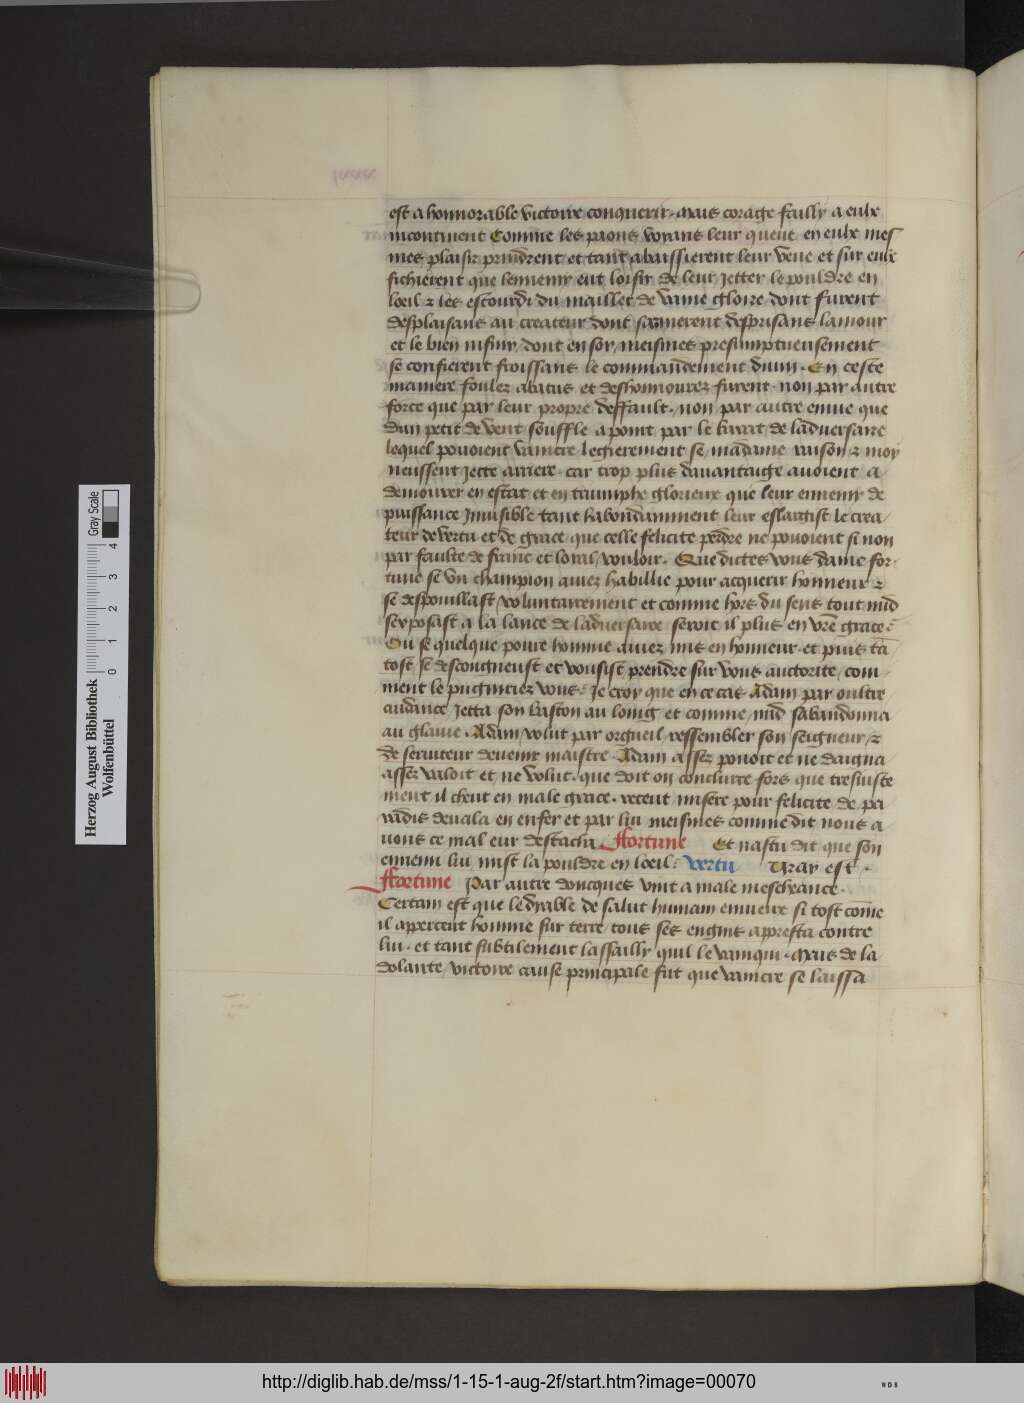 est a honnorable victoire conquerir. Mais corage failly a eulx
incontinent Comme les paons voyans leur queue en eulx mes
mes plaisir prindrent et tant abaissierent leur veue et sur eulx
fichierent que lennemy eut loisir de leur jetter le pouldre en
loeil ⁊ les estourdi du maillet de vaine gloire dont furent
desplaisans au createur dont samerent desprisans lamour
et le bien infiny dont en soy meismes presumptueusement
se confierent froissans le commandement diuin. En ceste
maniere foulez abatus et deshonnourez furent. non par autre
force que par leur propre deffault. non par autre enuie que
dun petit de vent souffle a point par le barat de laduersaire
lequel pouoient vaincre legierement se madame raison ⁊ moy
neussent jette arriere. car trop plus dauantaige auoient a
demourer en estat et en triumphe glorieux que leur ennemy de
puissance Inuisible tant habondamment leur eslargist le crea
teur de vertu et de grace que celle felicite perdre ne pouoient si non
par faulte de franc et loyal vouloir. Que dictes vous dame for
tune se vn champion auiez habillie pour acquerir honneur ⁊
se despouillast voluntairement et comme hors du sens tout nud
sexposast a la lance de laduersaire seroit il plus en vre grace
Ou se quelque poure homme auiez mis en honneur et puis ta
tost se descongneust et vousist prendre sur vous auctorite com
ment le pugniriez vous. Je croy que en ce cas Adam par oultre
cuidance jetta son baston au loing et comme nud sabandonna
au glaiue. Adam volut par orgueil ressembler son seigneur ⁊
de seruiteur deuenir maistre Adam assez pouoit et ne daigna
assez valoit et ne volut. que doit on conclurre fors que tresiuste
ment il cheut en male grace. receut misere pour felicite de pa
radis deuala en enfer et par luy meismes comme dit nous a
uons ce mal eur destacha Ffortune Et nastu dit que son
ennemi luy mist la pouldre en loeil: vertu Vray est.
Ffortune Par autre doncques vint a male mescheance.
Certain est que le dyable de salut humain enuieux si tost come
il apperceut homme sur terre tous ses engins appresta contre
luy. et tant subtilement lassailly quil le vainqui. Mais de la
dolante victoire cause principale fut que vaincre se laissa
Herzog August Bibliothek
Wolfenbüttel
0 1 2 3 4
Gray Scale
http://diglib.hab.de/mss/1-15-1-aug-2f/start.htm?image=00070